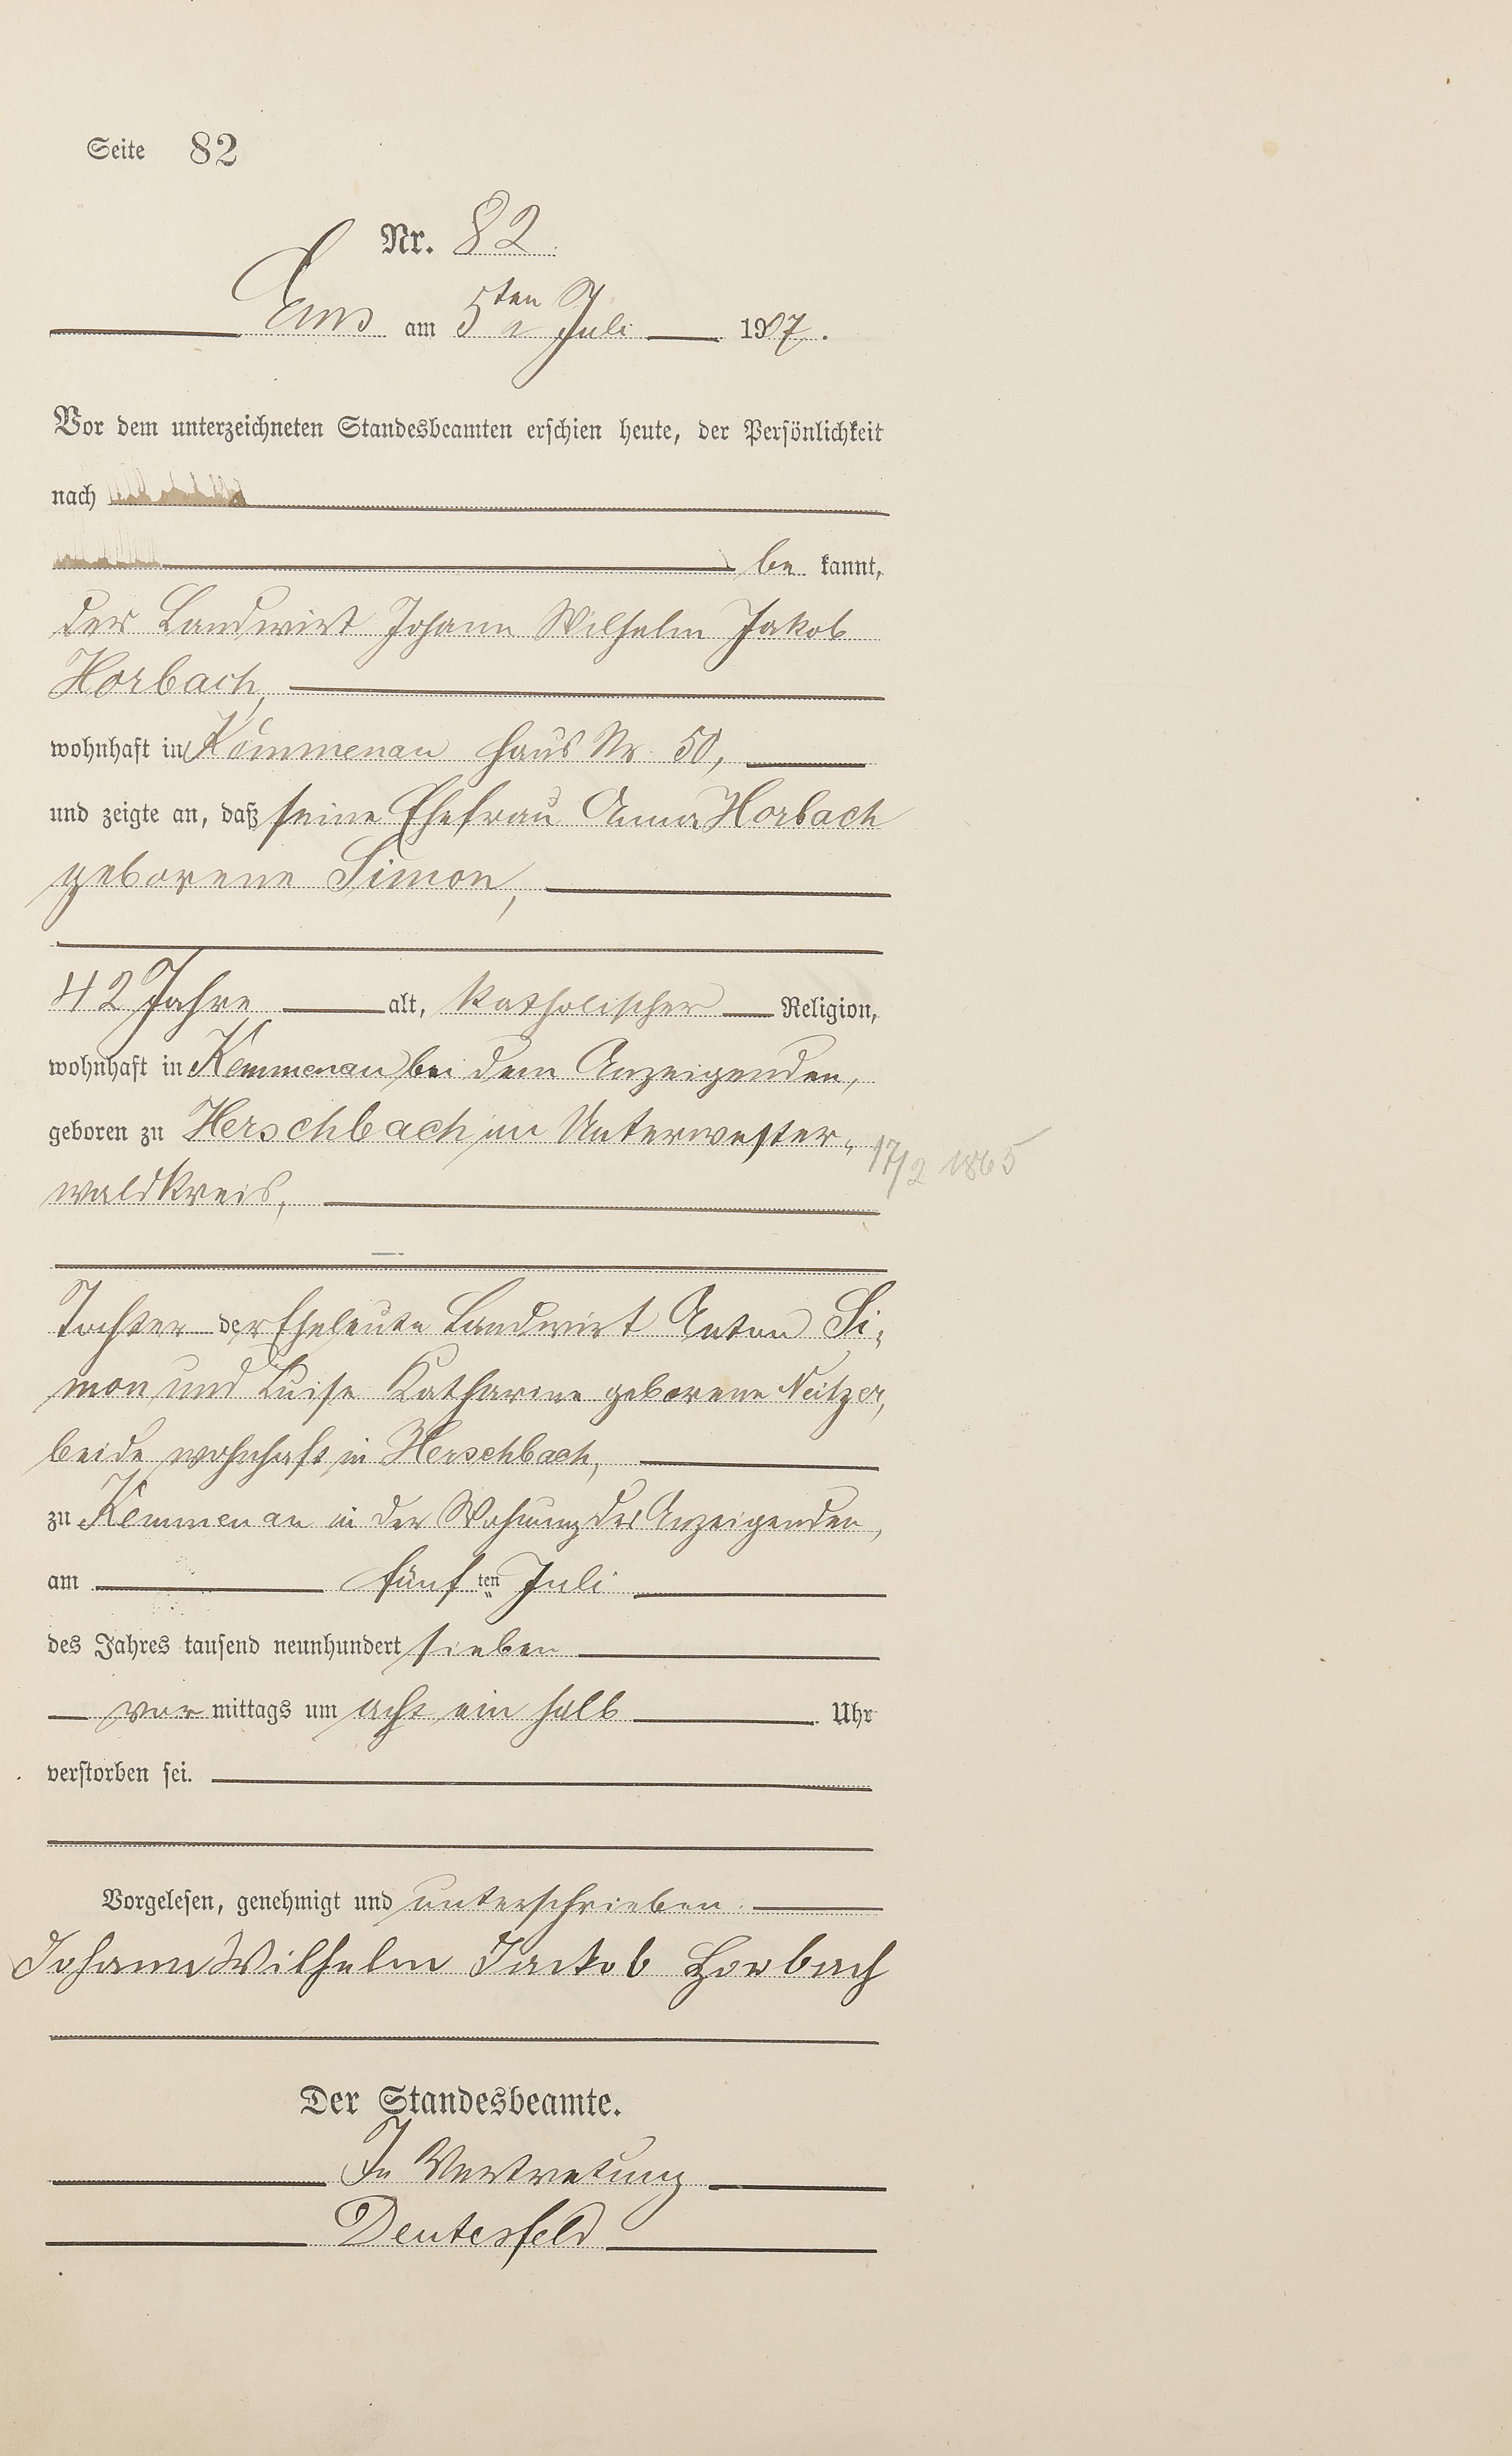 Seite 82
Nr. 82
Ems am 5ten Juli 1907.
Vor dem unterzeichneten Standesbeamten erschien heute, der Persönlichkeit
nach
be kannt,
der Landwirt Johann Wilhelm Jakob
Horbach,
wohnhaft in Kemmenau Haus Nr. 50,
und zeigte an, daß seine Ehefrau Anna Horbach
geborene Simon,
42 Jahre alt, katholischer Religion,
wohnhaft in Kemmenau bei dem Anzeigenden,
geboren zu Herschbach im Unterwester-
17/2 1865
waldkreis,
Tochter der Eheleute Landwirt Anton Si-
mon und Luise Katharine geborene
beide wohnhaft in Herschbach,
zu Kemmenau in der Wohnung des Anzeigenden,
am fünften Juli
des Jahres tausend neunhundert sieben
vor mittags um acht ein halb Uhr
verstorben sei.
Vorgelesen, genehmigt und unterschrieben.
Johann Wilhelm Jackob Horbach
Der Standesbeamte.
In Vertretung
Deutesfeld